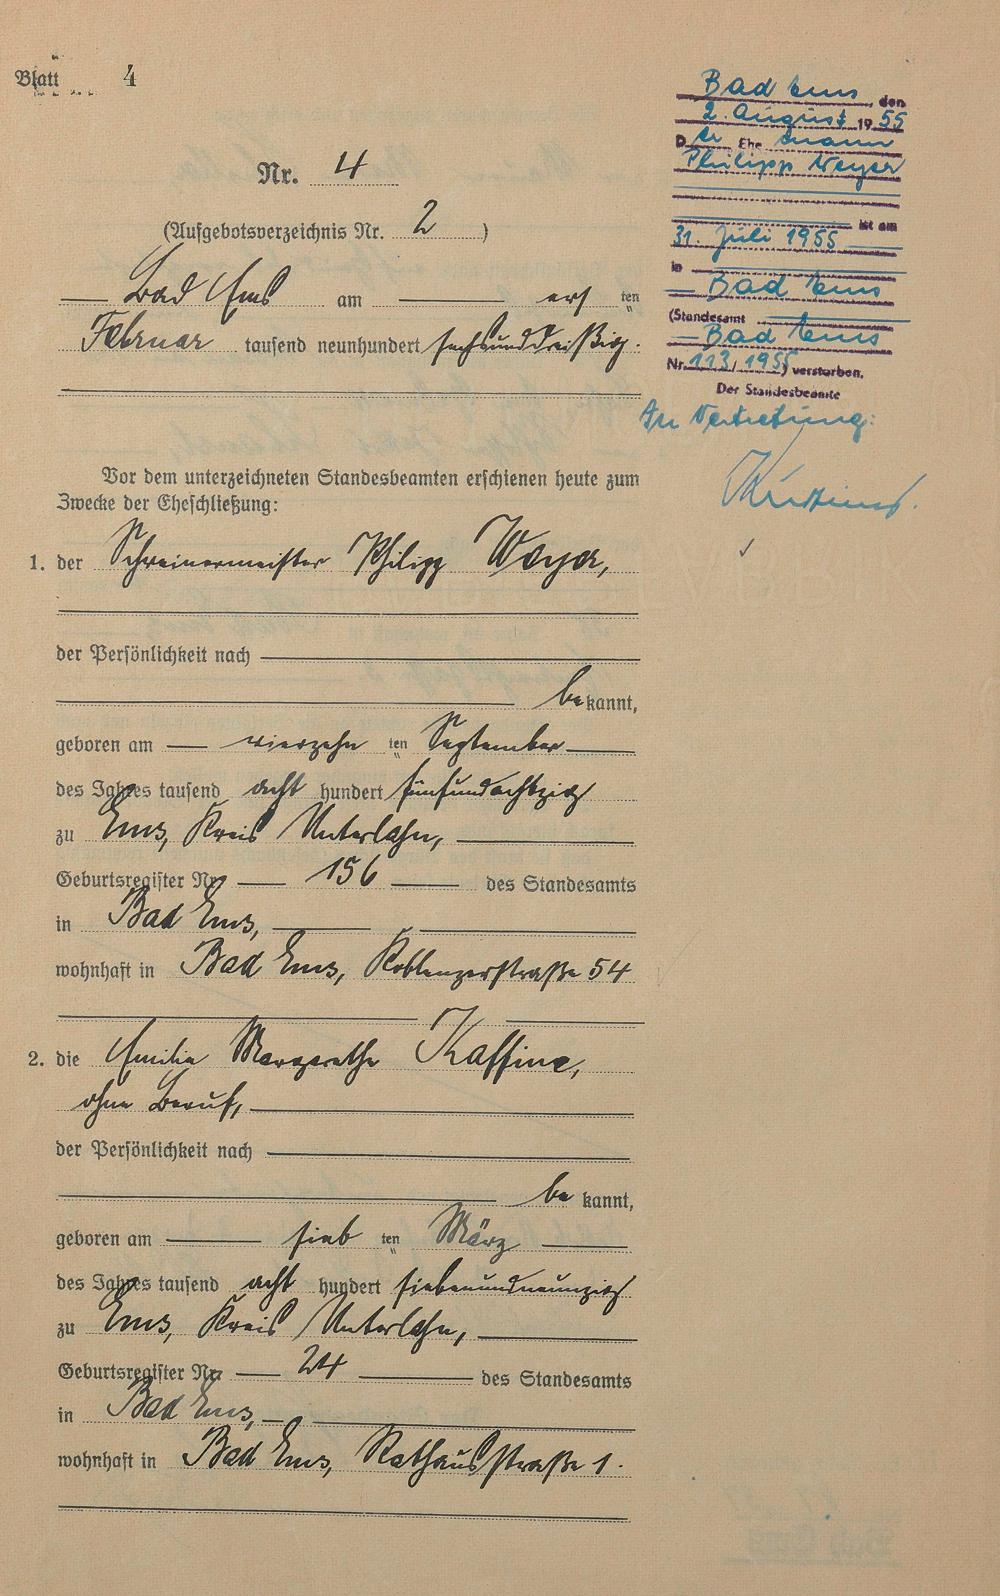 Blatt 4
Nr. 4
(Aufgebotsverzeichnis Nr. 2)
Bad Ems am erſ ten
Februar tauſend neunhundert ſechsunddreißig.
Vor dem unterzeichneten Standesbeamten erſchienen heute zum
Zwecke der Eheſchließung:
1. der Schreinermeiſter Philipp Weyer,
der Perſönlichkeit nach
be kannt,
geboren am vierzehn ten September
des Jahres tauſend acht hundert fünfundachtzig
zu Ems, Kreis Unterlahn,
Geburtsregiſter Nr. 156 des Standesamts
in Bad Ems,
wohnhaft in Bad Ems, Koblenzerſtraße 54
2. die Emilie Margarethe Kaffine,
ohne Beruf,
der Perſönlichkeit nach
be kannt,
geboren am ſieb ten März
des Jahres tauſend acht hundert ſiebenundneunzig
zu Ems, Kreis Unterlahn,
Geburtsregiſter Nr. 24 des Standesamts
in Bad Ems,
wohnhaft in Bad Ems, Rathausſtraße 1.
Bad Ems, den
2. August 1955
Der Ehemann
Philipp Weyer
ist am
31. Juli 1955
in
Bad Ems
(Standesamt
Bad Ems
Nr. 113/1955) verstorben.
Der Standesbeamte
In Vertretung: